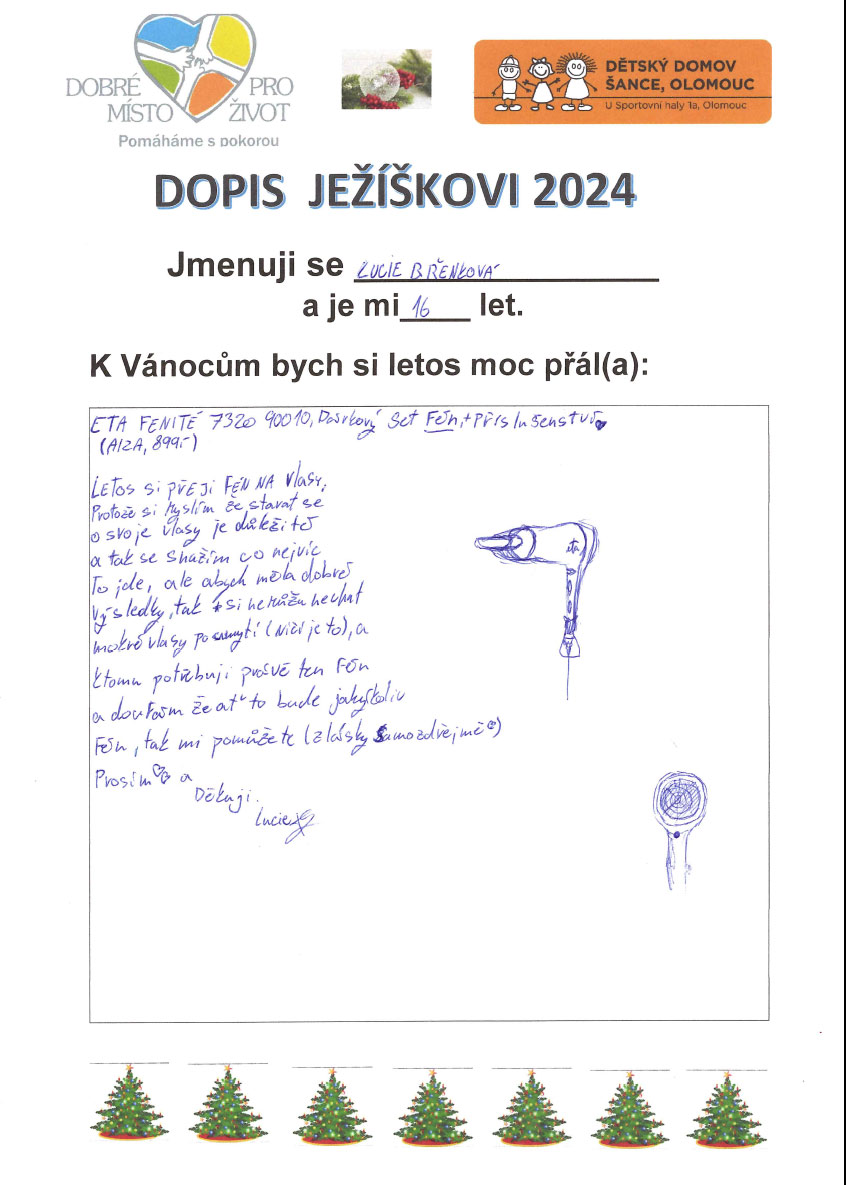 DOBRÉ PRO
MÍSTO ŽIVOT
Pomáháme s pokorou
DĚTSKÝ DOMOV
ŠANCE, OLOMOUC
U Sportovní haly 1a, Olomouc
DOPIS JEŽÍŠKOVI 2024
Jmenuji se LUCIE BŘENKOVÁ
a je mi 16 let.
K Vánocům bych si letos moc přál(a):
ETA FENITÉ 7320 90010, Dárkový Set Fén, + Příslušenství
(AlzA, 899,-)
LETOS SI PŘEJI FÉN NA Vlasy,
Protože si Myslím že starat se
o svoje vlasy je důležité
a tak se snažím co nejvíc
To jde, ale abych měla dobré
výsledky, tak si nemůžu nechat
mokré vlasy po umytí (Ničí je to), a
ktomu potřebuji právě ten Fén
a doufám že ať to bude jakýkoliv
Fén, tak mi pomůžete (z lásky Samozdřejmě)
Prosím a
Děkuji.
Lucie
eta